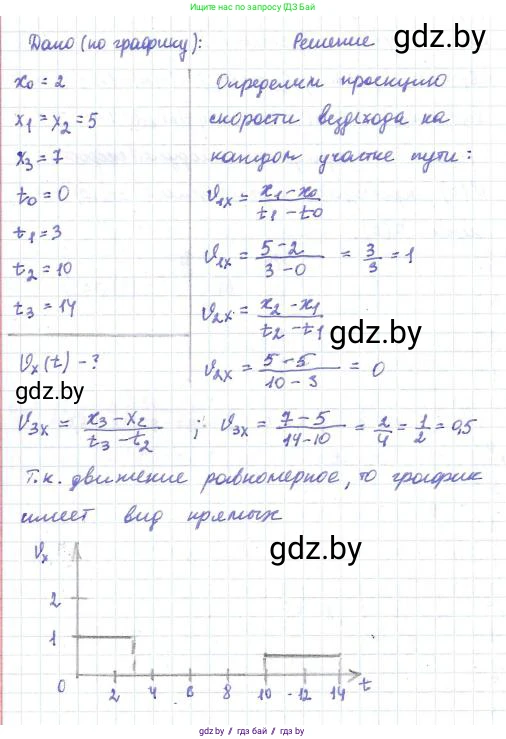 Ищите нас по запросу ГДЗ Бай
Дано (по графику):
Решение
gdz.by
x₀ = 2
x₁ = x₂ = 5
x₃ = 7
t₀ = 0
t₁ = 3
t₂ = 10
t₃ = 14
ϑₓ(t) - ?
gdz.by
Определим проекцию
скорости вездехода на
каждом участке пути:
ϑ₁ₓ = (x₁ - x₀)/(t₁ - t₀)
ϑ₁ₓ = (5 - 2)/(3 - 0) = 3/3 = 1
ϑ₂ₓ = (x₂ - x₁)/(t₂ - t₁)
gdz.by
ϑ₂ₓ = (5 - 5)/(10 - 3) = 0
ϑ₃ₓ = (x₃ - x₂)/(t₃ - t₂); ϑ₃ₓ = (7 - 5)/(14 - 10) = 2/4 = 1/2 = 0,5
Т.к. движение равномерное, то график
имеет вид прямых
gdz.by
ϑₓ
2
1
0 2 4 6 8 10 12 14 t
gdz.by / гдз бай / gdz.by